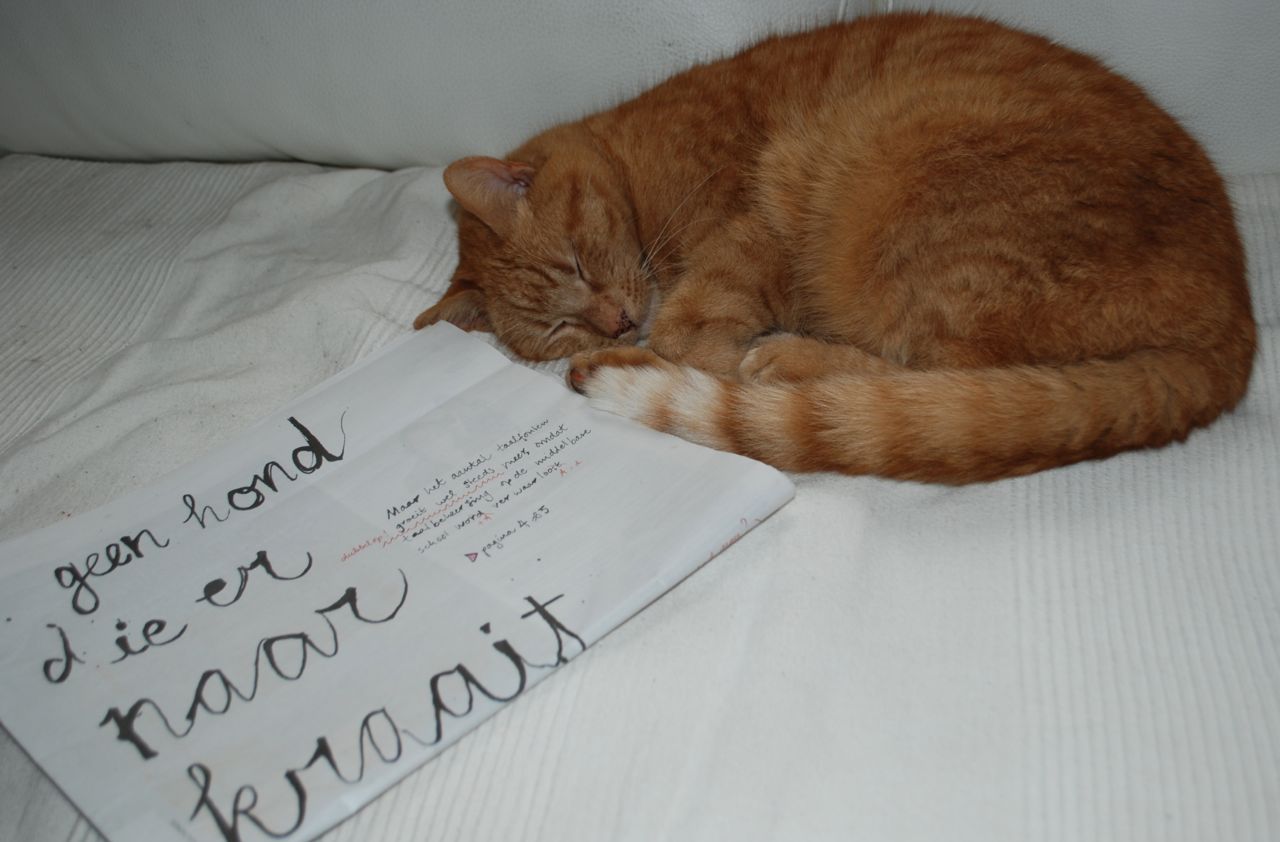 geen hond
die er
naar
kraait
Maar het aantal taalfouten
groeit wel steeds meer, omdat
taalbeheersing op de middelbare
school word verwaarloost
dubbelop!
pagina 4,